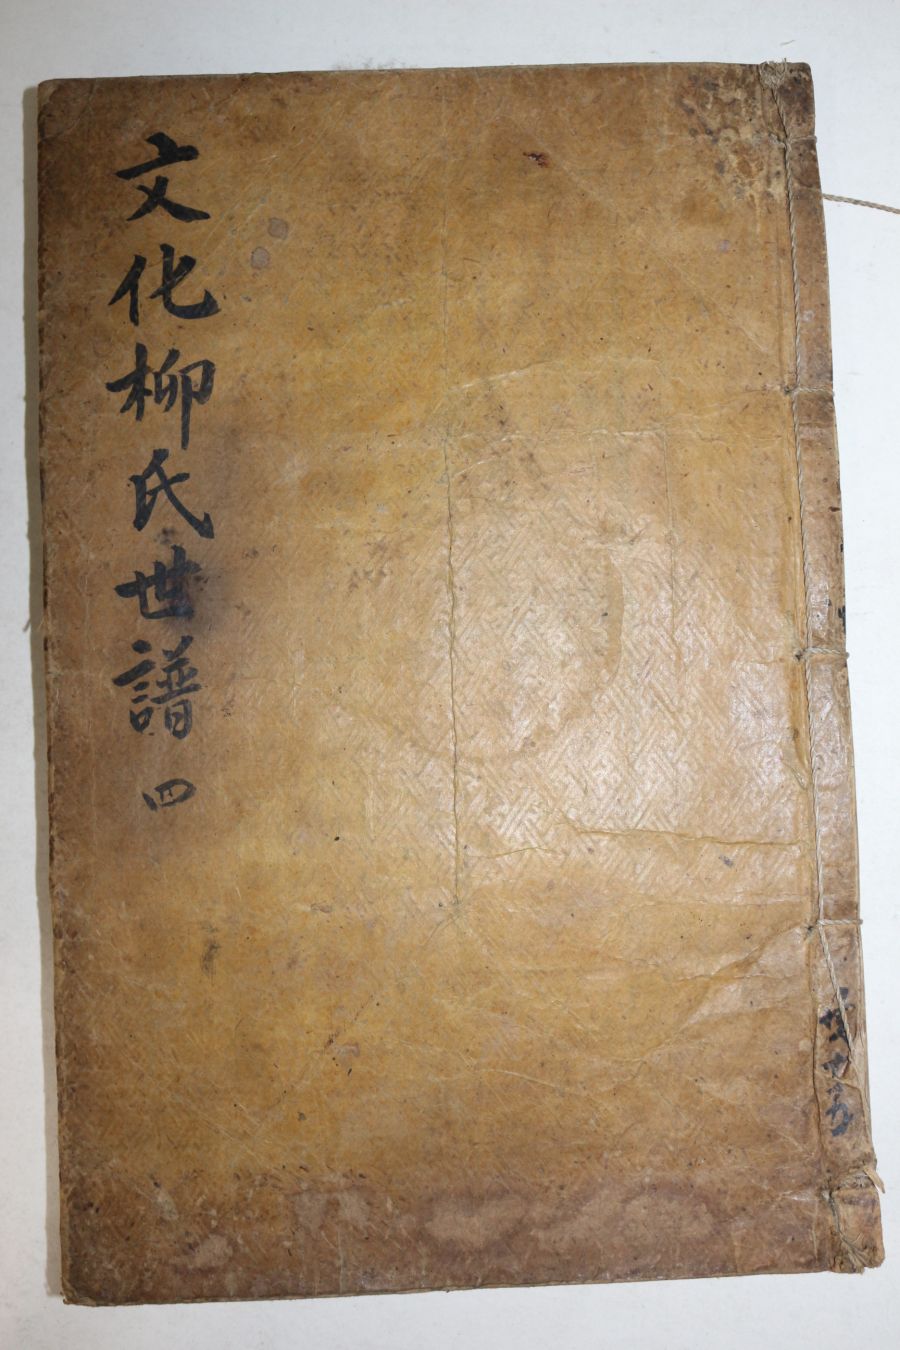 文化柳氏世譜 四